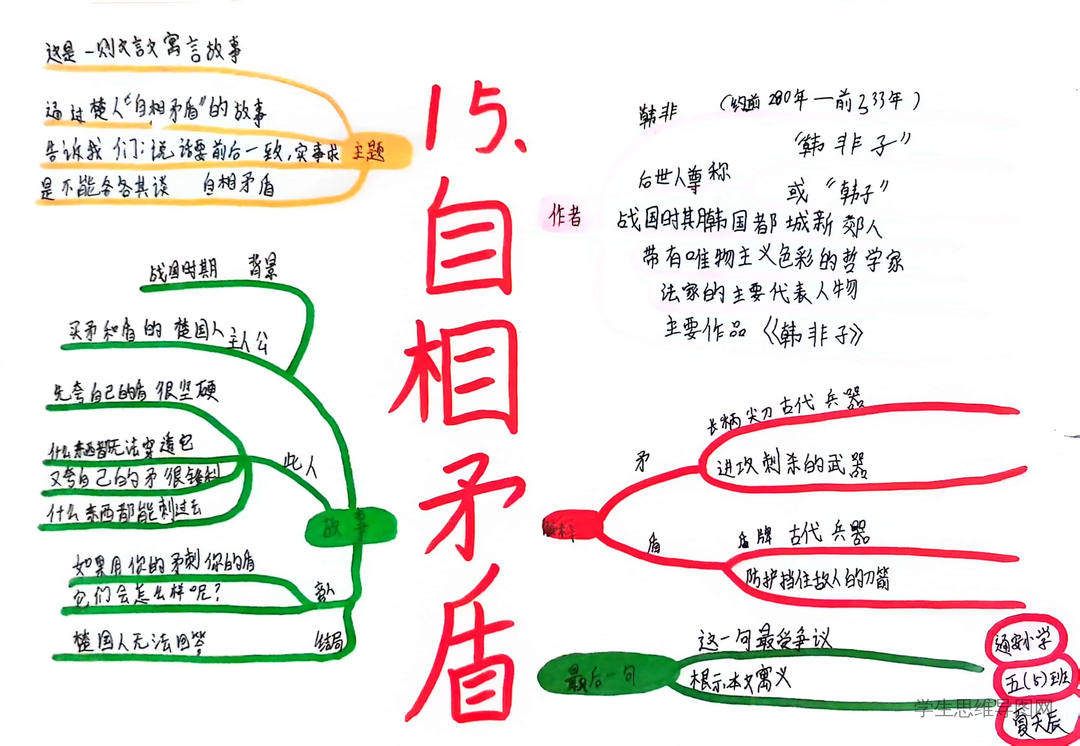 这是一则文言文寓言故事
通过楚人“自相矛盾”的故事
告诉我们：说话要前后一致，实事求
是不能各各其谈 自相矛盾
主题
15、自相矛盾
韩非 （约前280年—前233年）
“韩非子”
后世人尊称
或“韩子”
作者
战国时期韩国都城新郑人
带有唯物主义色彩的哲学家
法家的主要代表人物
主要作品《韩非子》
战国时期 背景
买矛和盾的楚国人 主人公
先夸自己的盾很坚硬
什么东西都无法穿透它
又夸自己的矛很锋利
什么东西都能刺过去
此人
故事
如果用你的矛刺你的盾
它们会怎么样呢？
楚国人无法回答
结局
长柄尖刀古代兵器
矛
进攻刺杀的武器
盾
盾牌 古代兵器
防护挡住敌人的刀箭
这一句最受争议
最后一句
揭示本文寓义
通安小学
五（5）班
夏天辰
学生思维导图网